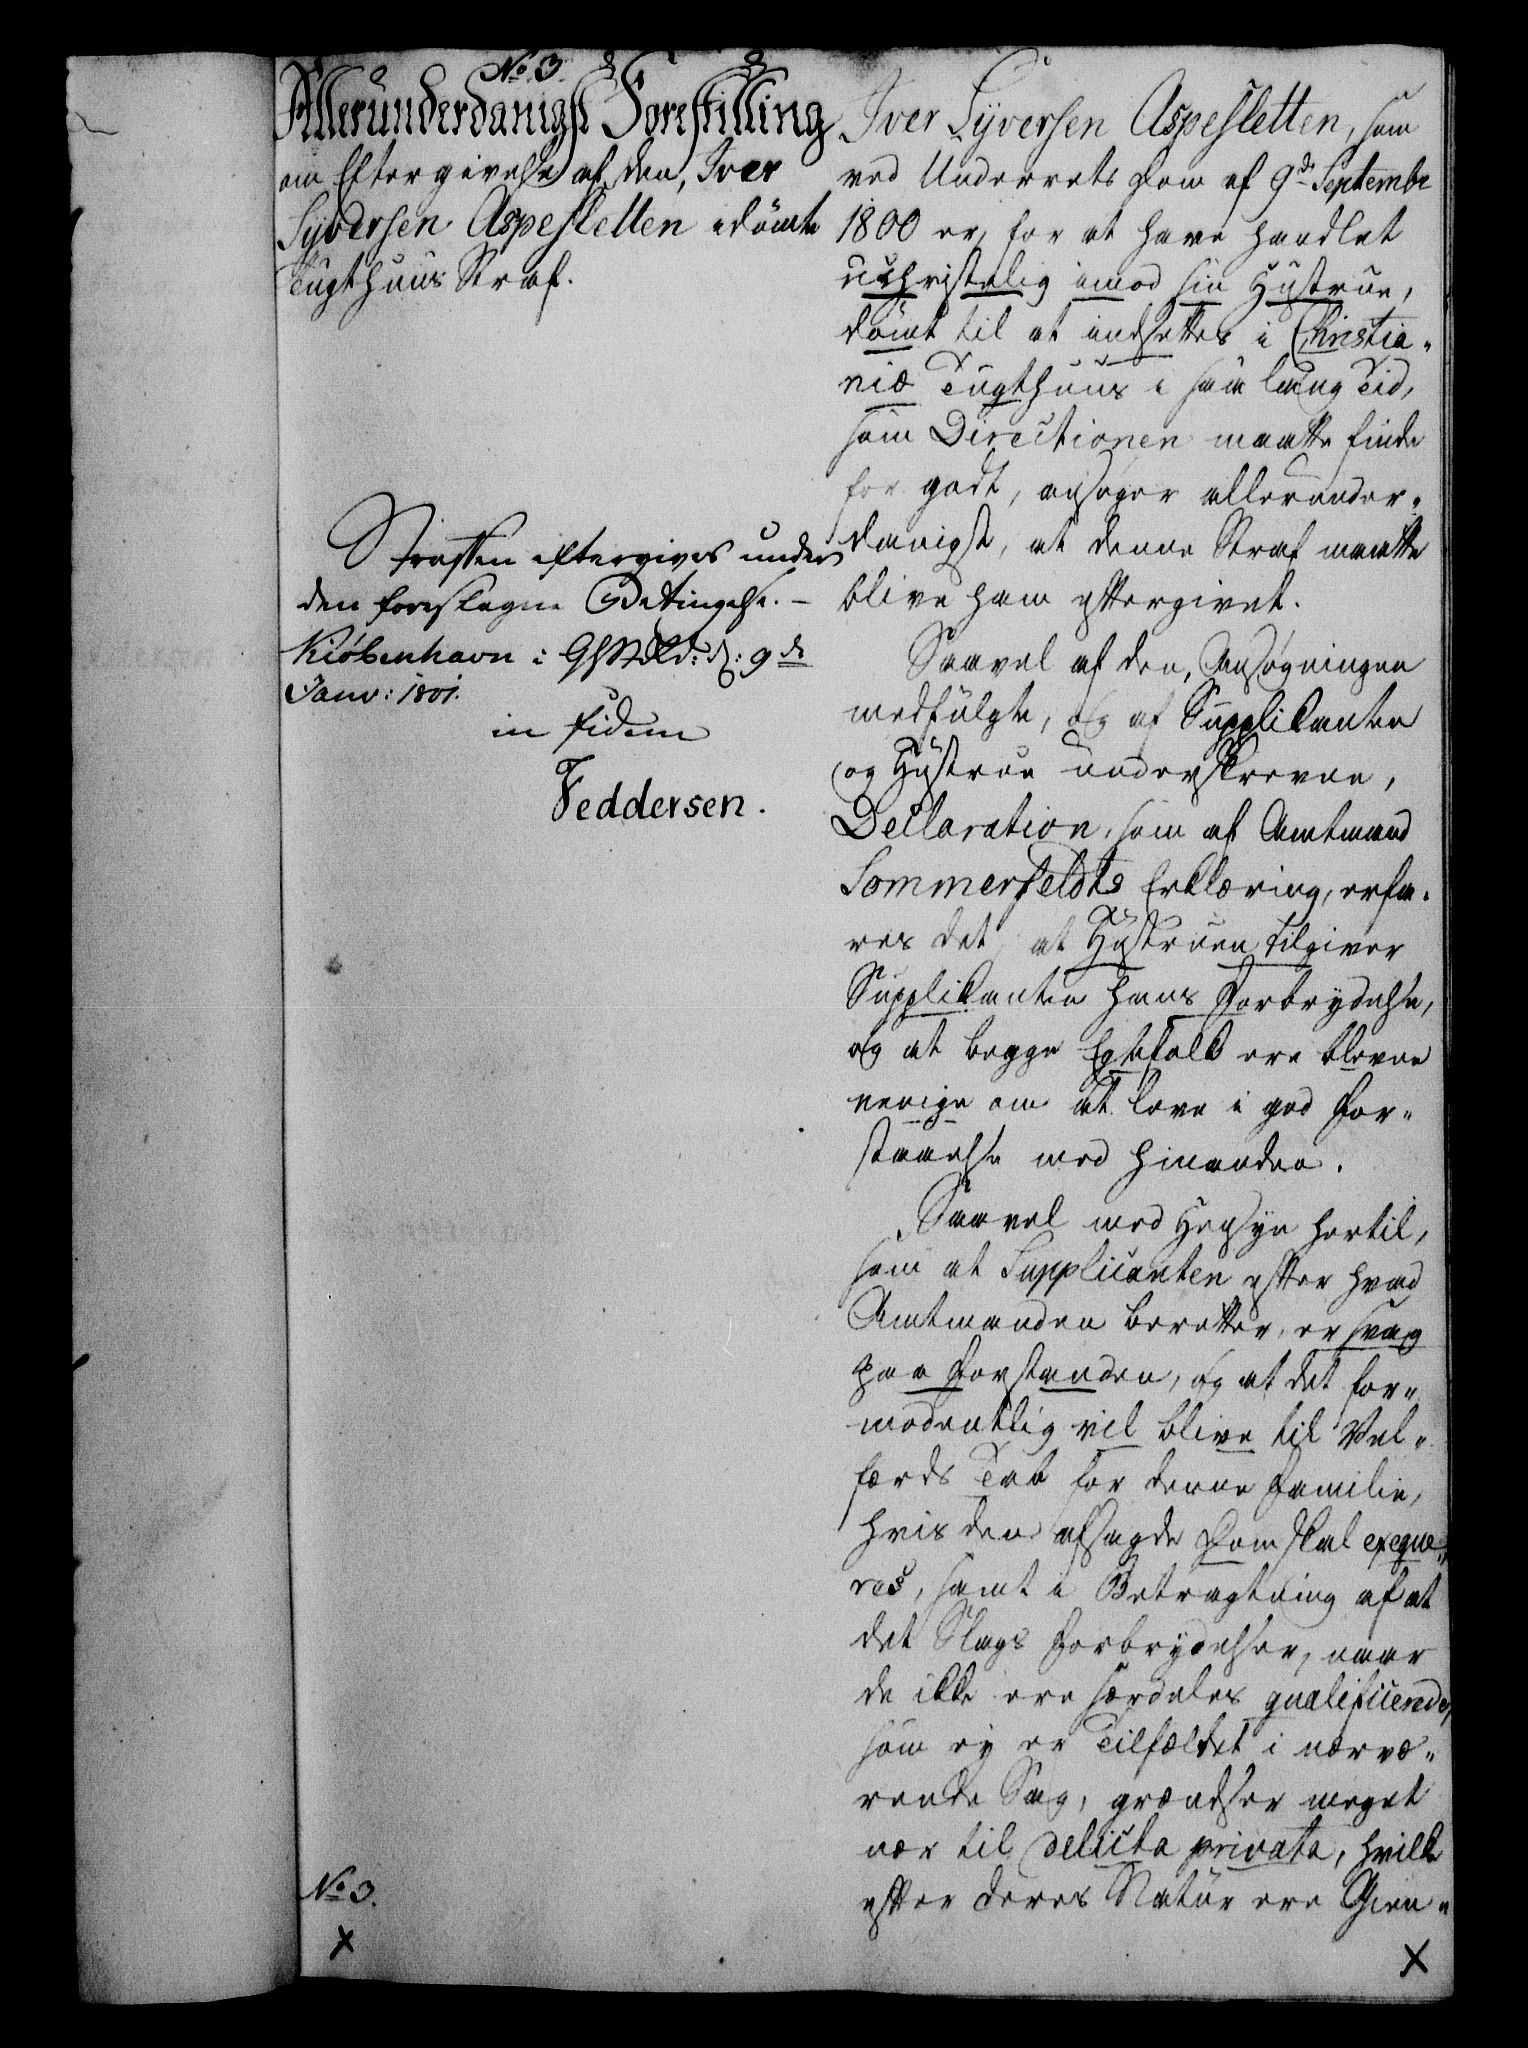 No 3.
Allerunderdanigst Forestilling
om Eftergivelse af den, Iver
Syversen Aspesletten idömte
Tugthuus Straf.
Straffen eftergives under
den foreslagne Betingelse. –
Kiöbenhavn i d: 9de
Janv: 1801.
in fidem
Feddersen.
No 3.
Iver Syversen Aspesletten, som
ved Underrets Dom af 9de Septembr
1800 er, for at have handlet
uchristelig imod sin Hustrue,
dömt til at indsettes i Christia-
niæ Tugthuus i saa lang Tid,
som Directionen maatte finde
for godt, ansöger allerunder-
danigst, at denne Straf maatte
blive ham eftergivet.
Saavel af den, Ansögningen
medfulgte, og af Supplikanten
og Hustrue underskrevne,
Declaration, som af Amtmand
Sommerfeldts Erklæring, erfa-
res det, at Hustruen tilgiver
Supplikanten hans Forbrydelse,
og at begge Egtefolk ere blevne
eenige om at leve i god For-
staaelse med hinanden.
Saavel med Hensyn hertil,
som at Supplicanten efter hvad
Amtmanden beretter, er svag
paa Forstanden, og at det for-
modentlig vil blive til Vel-
færds Tab for denne Familie,
hvis den afsagde Dom skal exeqve-
res, samt i Betragtning af at
det Slags Forbrydelser, naar
de ikke ere særdeles qualificerede,
som ey er Tilfældet i nærvæ-
rende Sag, grændser meget
nær til delicta privata, hvilke
efter deres Natur ere Gien-